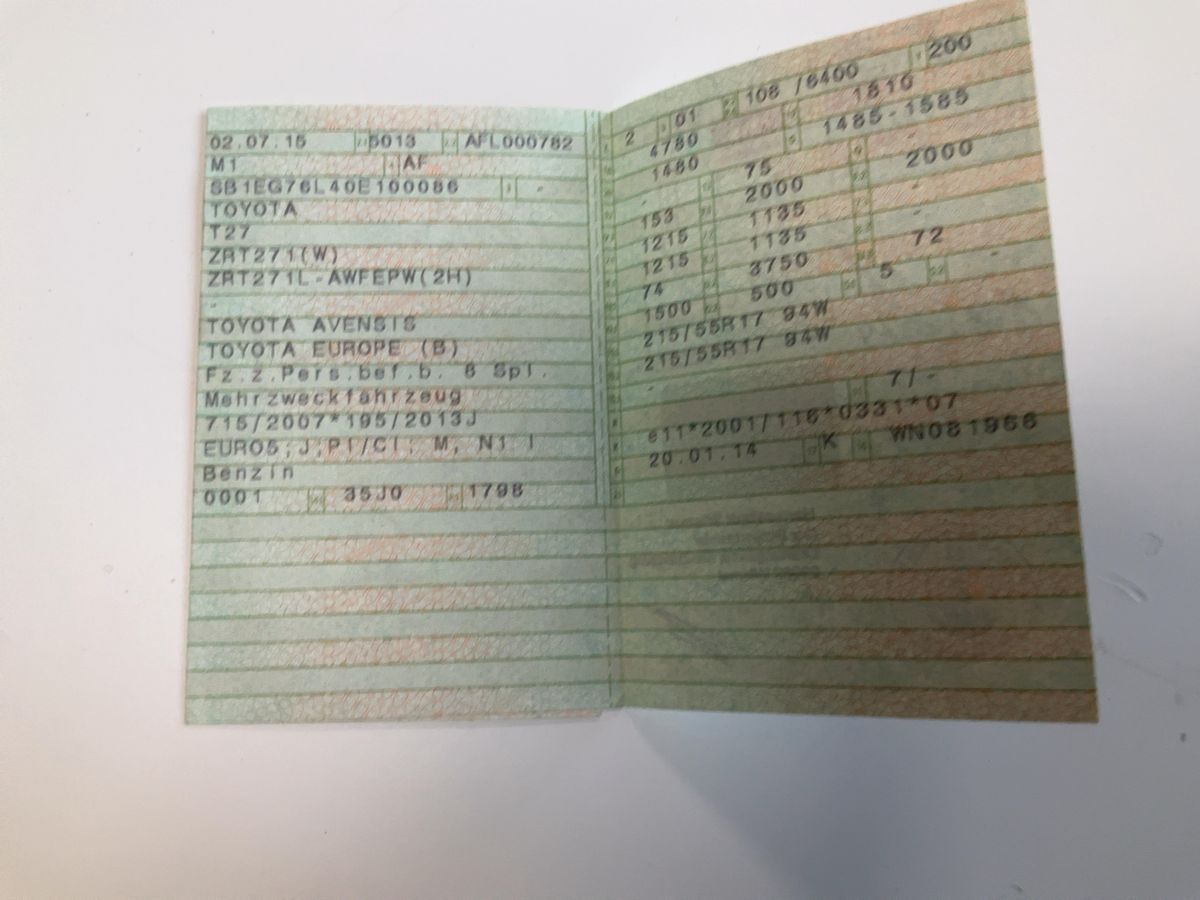 02.07.15 5013 AFL000782
M1 AF
SB1EG76L40E100086 -
TOYOTA
T27
ZRT271(W)
ZRT271L-AWFEPW(2H)
-
TOYOTA AVENSIS
TOYOTA EUROPE (B)
Fz.z.Pers.bef.b. 8 Spl.
Mehrzweckfahrzeug
715/2007*195/2013J
EURO5;J;PI/CI; M, N1 I
Benzin
0001 35J0 1798
2 01 108 /6400 200
4780 1810
1480 1485-1585
- 75 -
153 2000 2000
1215 1135 -
1215 1135 -
74 3750 72
1500 500 5
215/55R17 94W
215/55R17 94W
-
- 7/-
e11*2001/116*0331*07
20.01.14 K WN081966